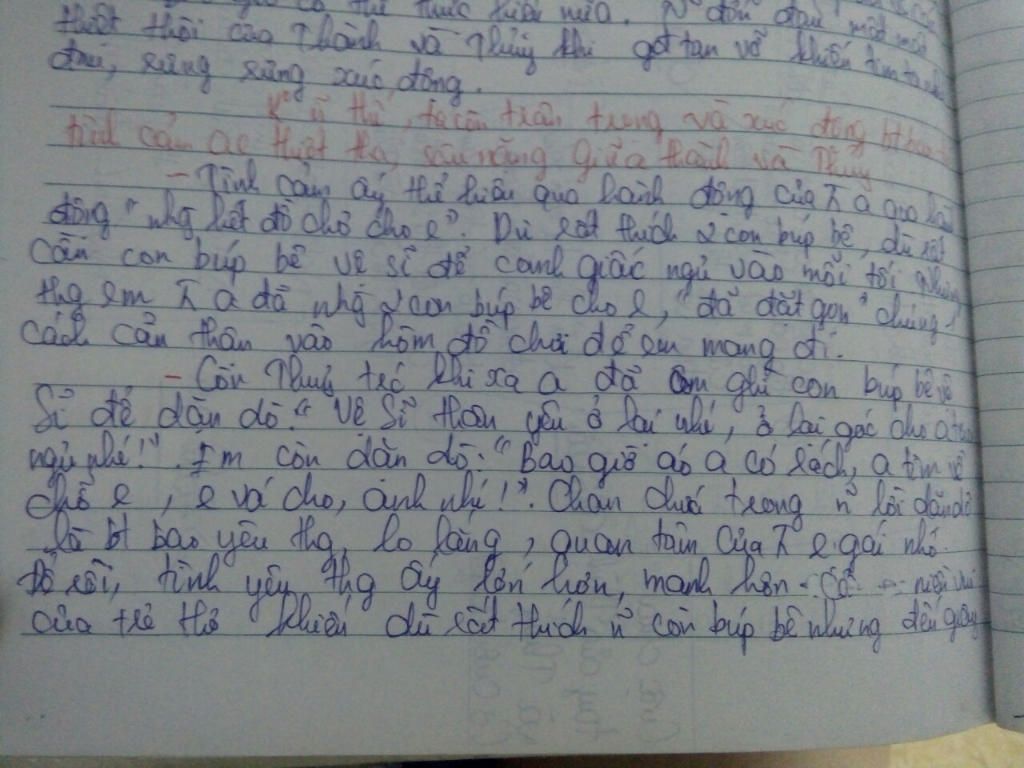 có thể thực hiện nữa. N~ đớn đau mất mát
thiệt thòi của Thành và Thủy khi gđ tan vỡ khiến tim ta
đau, rưng rưng xúc động.
K° ~ thế, ta còn trân trọng và xúc động bt bao
tình cảm ae thiệt tha, sâu nặng giữa thành và Thủy
- Tình cảm ấy thể hiện qua hành động của
động "nhg hết đồ chơi cho e". Dù rất thích 2 con búp bê, dù rất
cần con búp bê vệ sĩ để canh giấc ngủ vào mỗi tối nhưng
thg em a đã nhg 2 con búp bê cho e, "đã đặt gọn" chúng 1
cách cẩn thận vào hòm đồ chơi để em mang đi.
- Còn Thủy trc khi xa a đã ôm ghì con búp bê vệ
Sĩ để dặn dò: "Vệ Sĩ thân yêu ở lại nhé, ở lại gác cho a
ngủ nhé!". Em còn dặn dò: "Bao giờ áo a có rách, a tìm về
chỗ e, e vá cho, anh nhé!". Chan chứa trong ~ lời dặn dò
là bt bao yêu thg, lo lắng, quan tâm của e gái nhỏ.
Để rồi, tình yêu thg ấy lớn hơn, mạnh hơn cả niềm vui
của trẻ thơ khiến dù rất thích ~ con búp bê nhưng đến giây